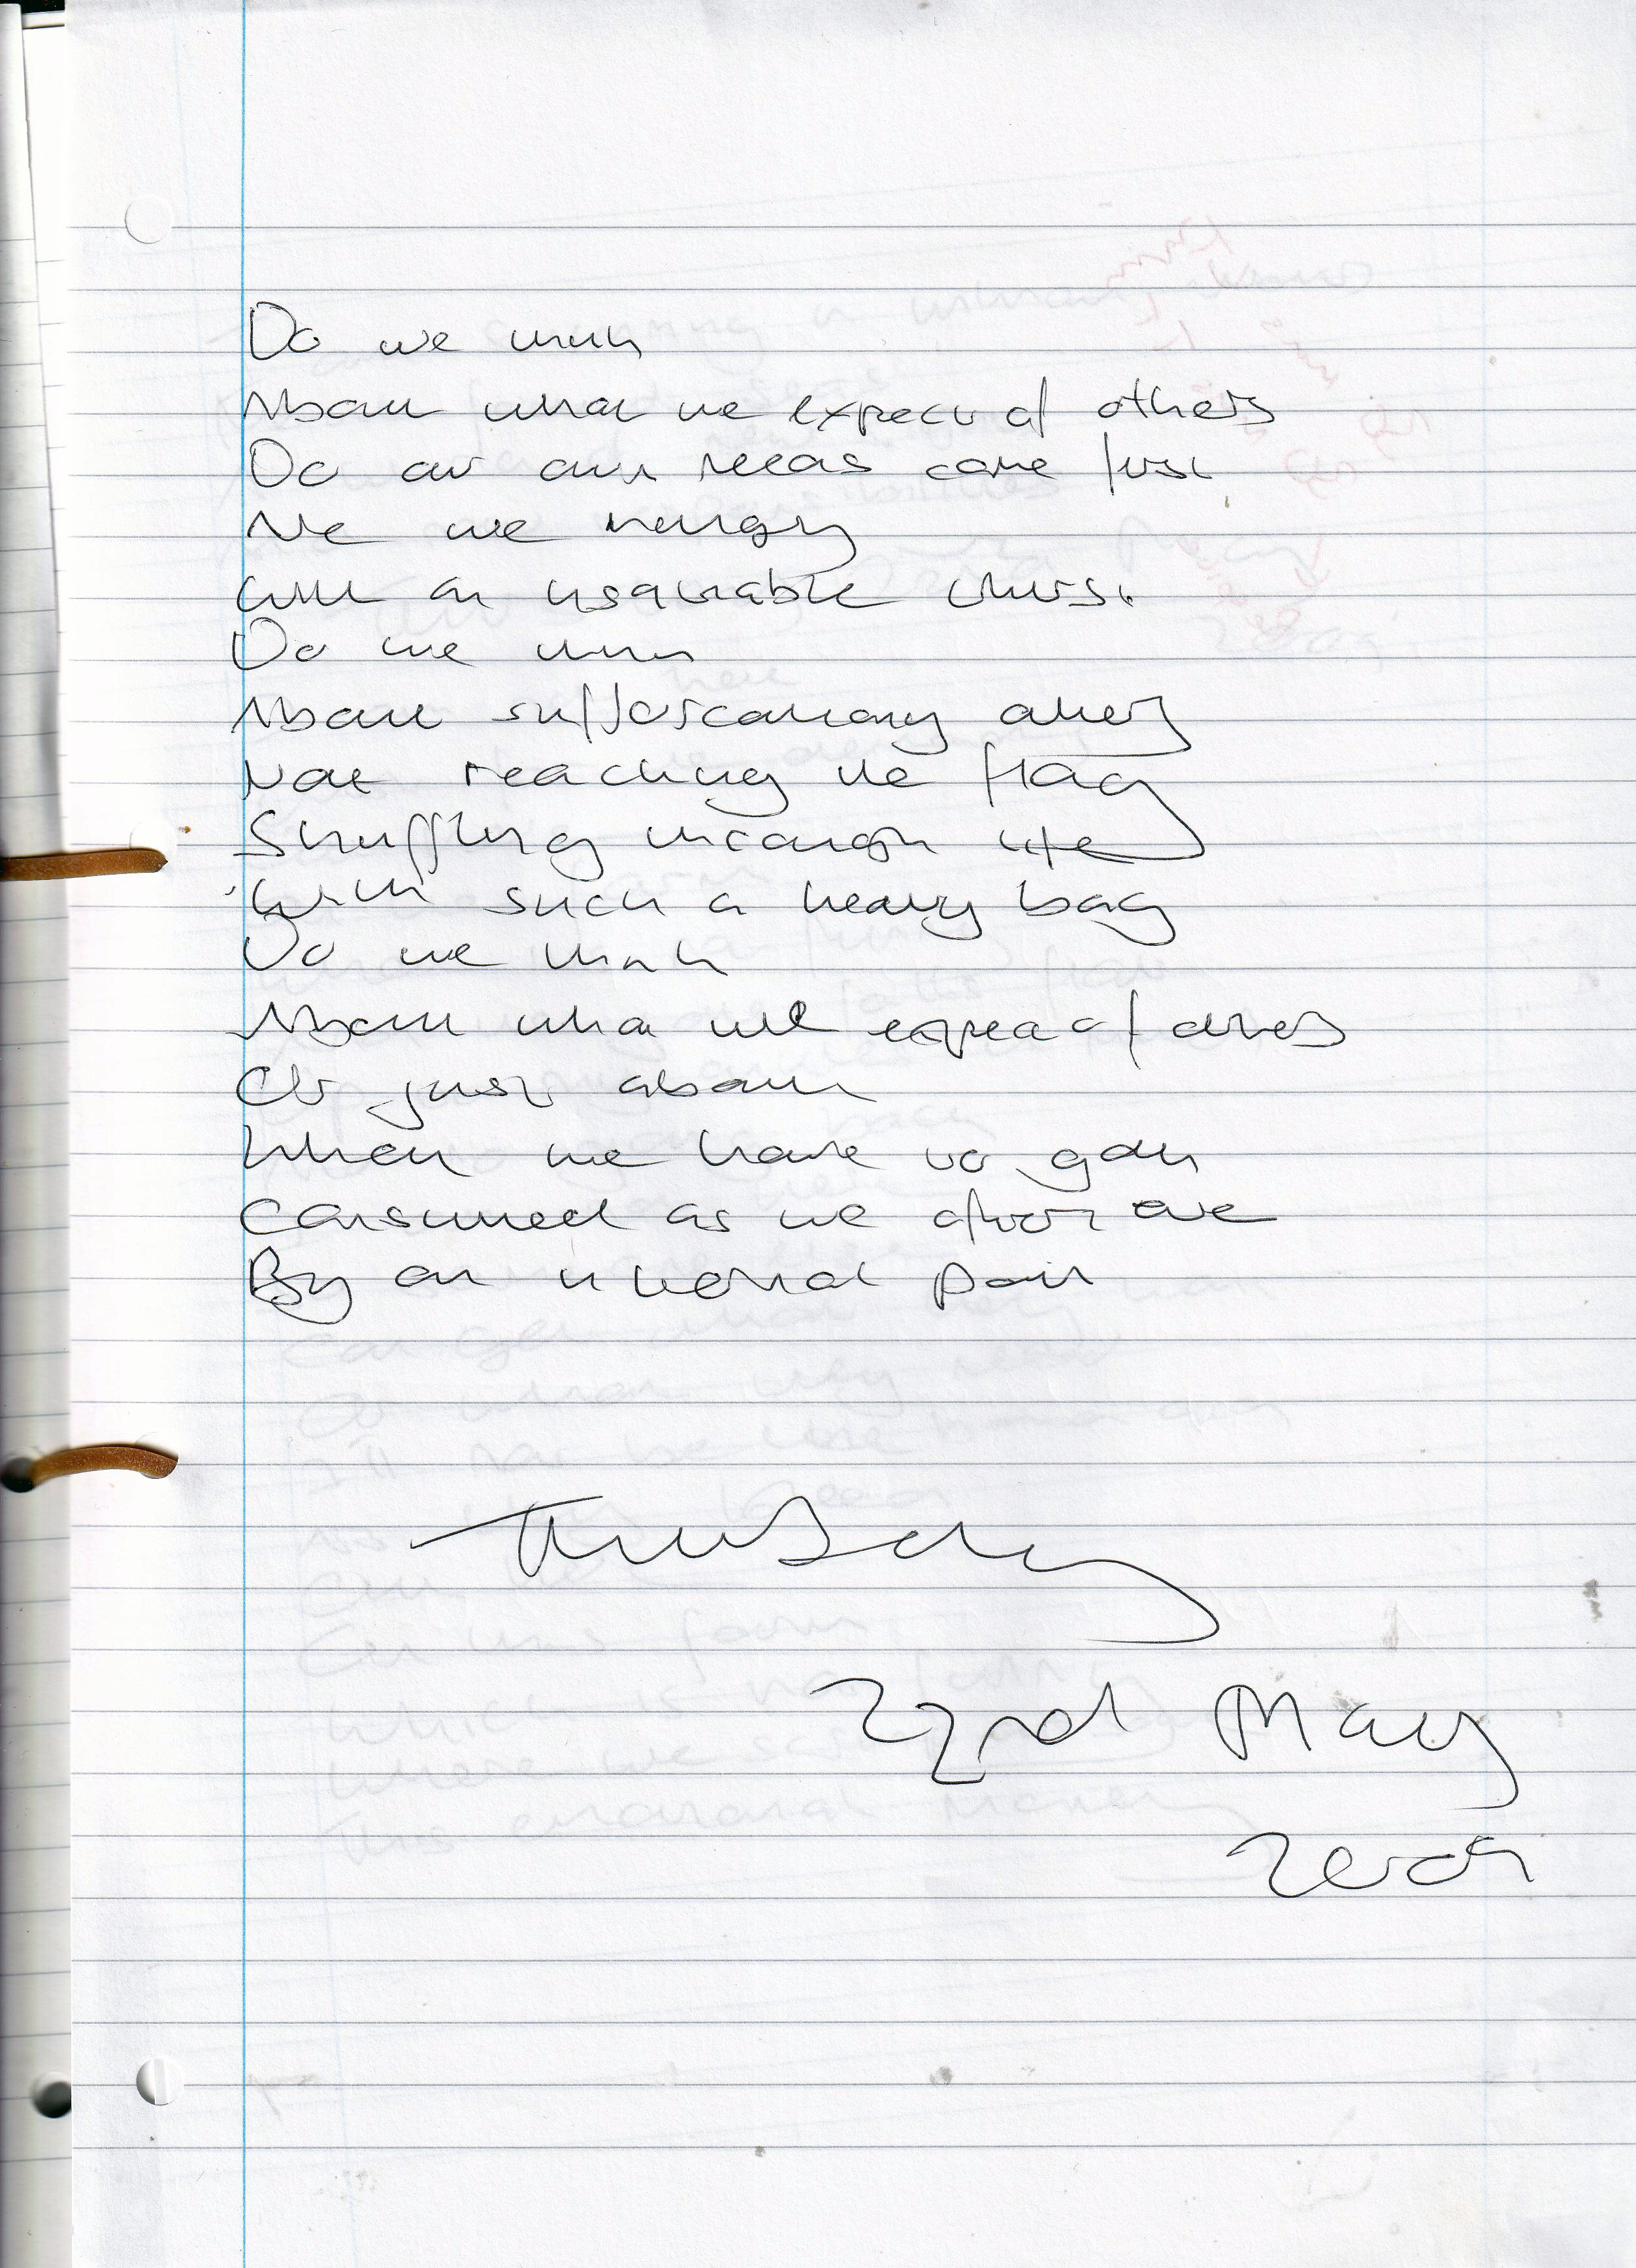 Do we think
About what we expect of others
Do our own needs come first
Are we hungry
With an insatiable thirst
Do we think
About suffocating others
Not reaching the flag
Shuffling through life
With such a heavy bag
Do we think
About what we expect of others
Or just about
What we have to gain
Consumed as we often are
By an internal pain
Thursday
22nd May